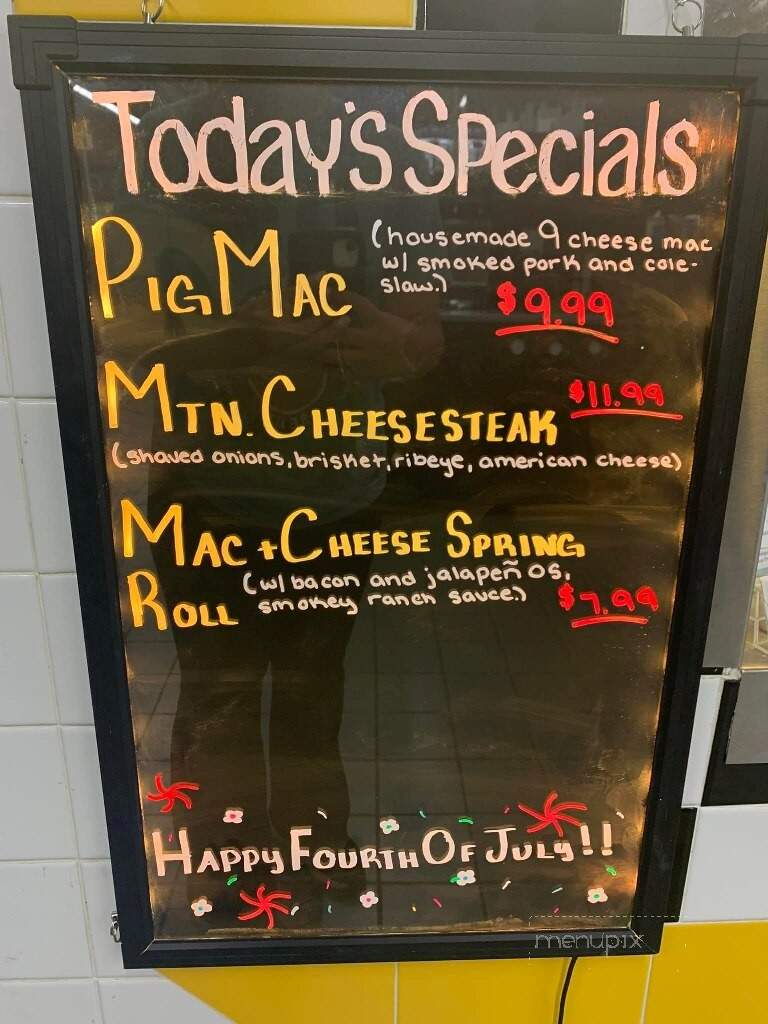 Today's Specials
Pig Mac
(housemade 9 cheese mac
w/ smoked pork and cole-
slaw.)
$9.99
Mtn. Cheesesteak
$11.99
(shaved onions, brisket, ribeye, american cheese)
Mac + Cheese Spring
Roll
(w/ bacon and jalapeños,
smokey ranch sauce.)
$7.99
Happy Fourth Of July!!
menupix